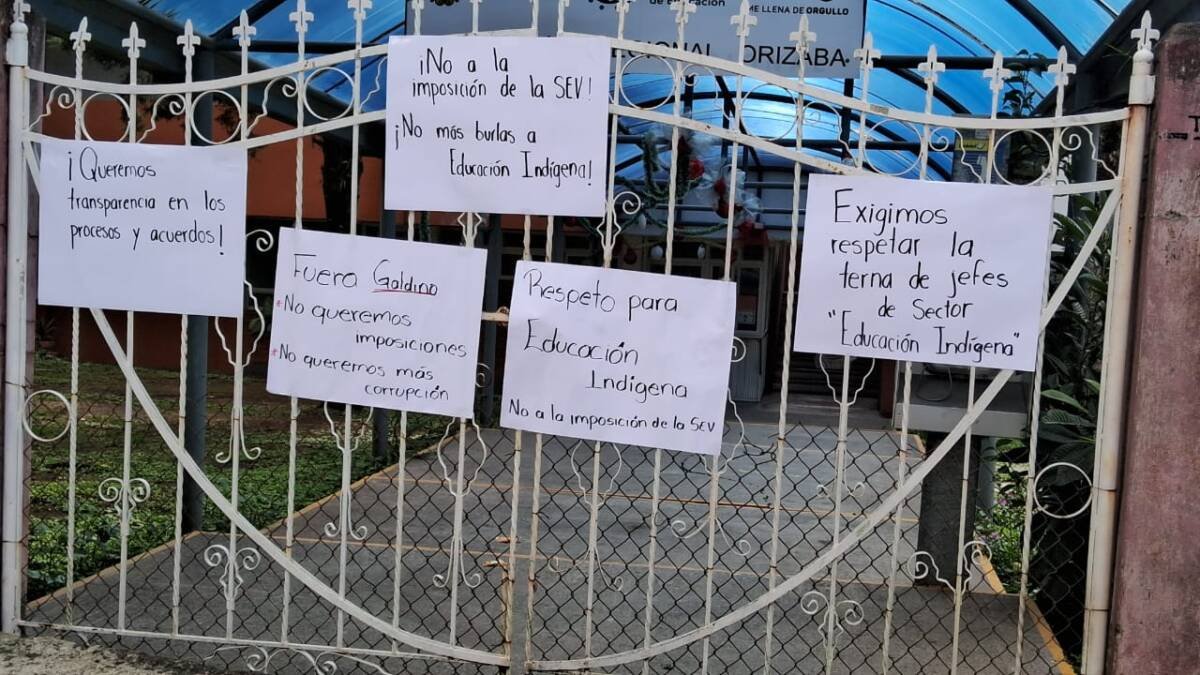 de educación
ME LLENA DE ORGULLO
ORIZABA
¡No a la
imposición de la SEV!
¡No más burlas a
Educación Indígena!
¡Queremos
transparencia en los
procesos y acuerdos!
Fuera Galdino
*No queremos
imposiciones
*No queremos más
corrupción
Respeto para
Educación
Indígena
No a la imposición de la SEV
Exigimos
respetar la
terna de jefes
de Sector
"Educación Indígena"